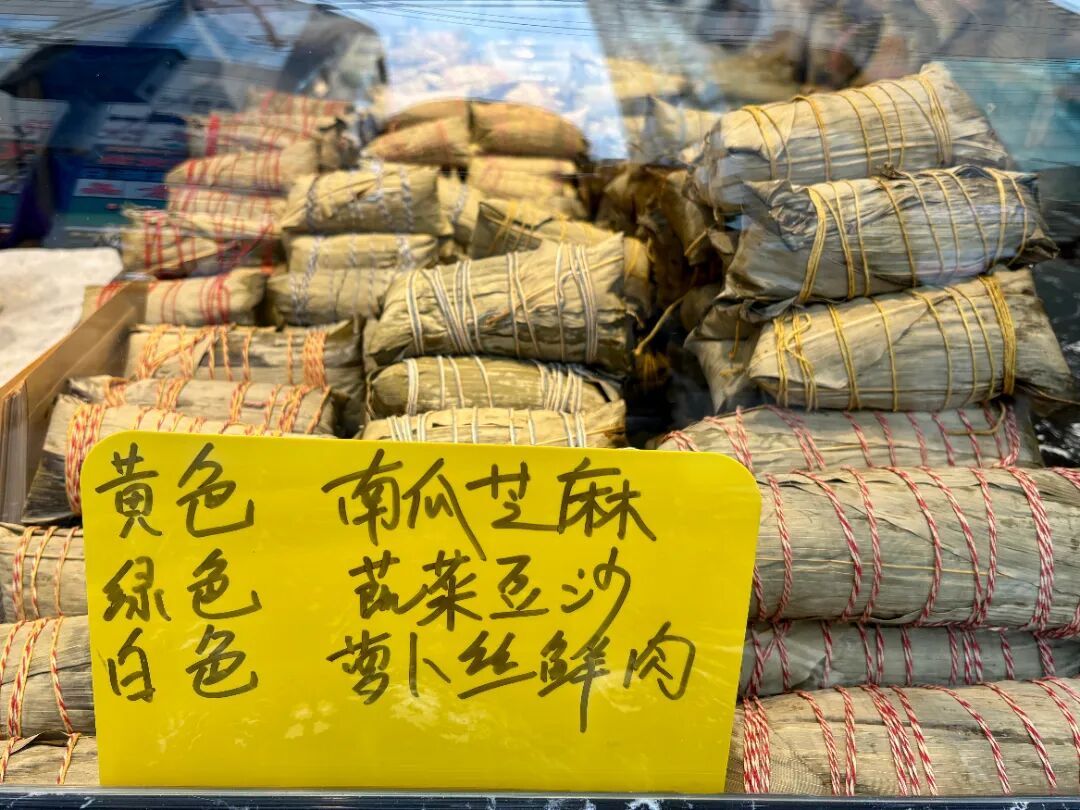 黄色 南瓜芝麻
绿色 蔬菜豆沙
白色 萝卜丝鲜肉